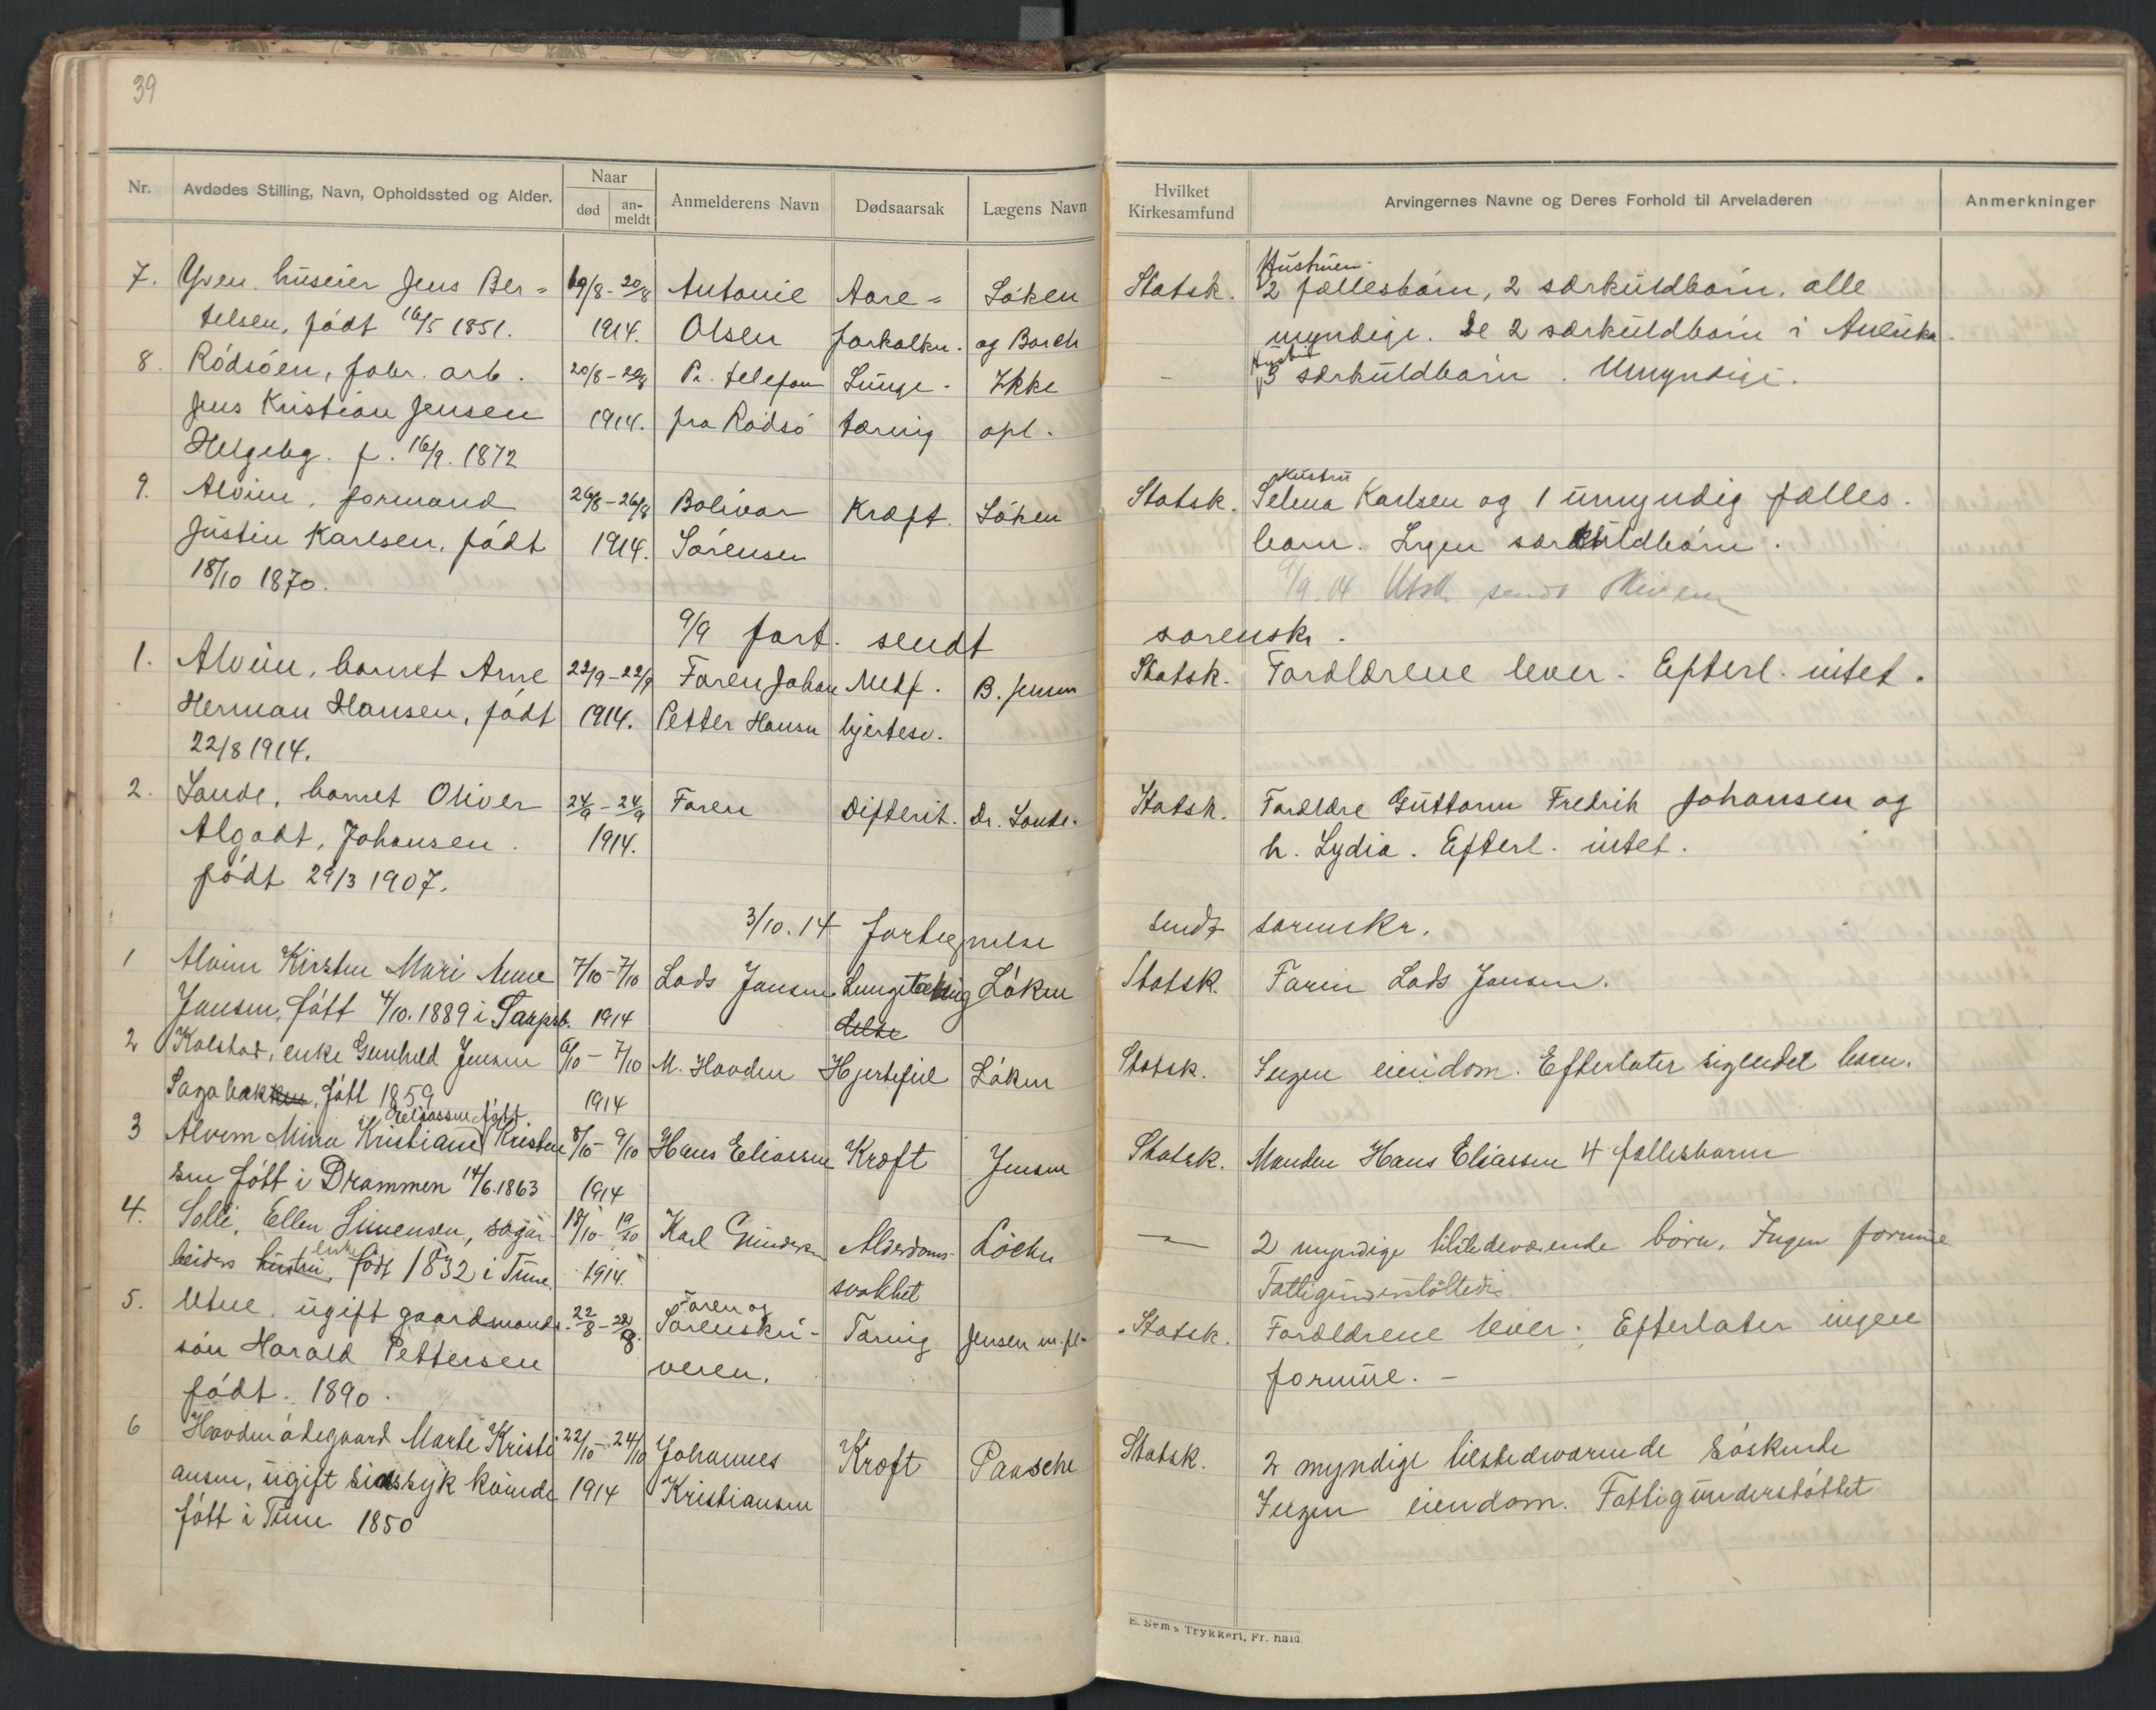 39
Nr. Avdødes Stilling, Navn, Opholdssted og Alder. Naar død an-meldt Anmelderens Navn Dødsaarsak Lægens Navn Hvilket Kirkesamfund Arvingernes Navne og Deres Forhold til Arveladeren Anmerkninger
Hustruen
7. Yven. huseier Jens Ber= 19/8 - 20/8 Antonie Aare= Löken Statsk. 2 fællesbörn, 2 særkuldbörn, alle
telsen, födt 16/5 1851. 1914. Olsen forkalkn. og Borch myndige. De 2 særkuldbörn i Amerika.
8. Rödsöen, fabr. arb. 20/8 - 20/8 Pr. telefon Lunge- Ikke - Hustru 3 særkuldbörn. Umyndige.
Jens Kristian Jensen 1914. fra Rödsö tæring opl.
Helgebg. f. 16/9. 1872
Hustru
9. Alvim, formand 26/8 - 26/8 Bolivar Kræft. Löken Statsk. Selma Karlsen og 1 umyndig fælles-
Justin Karlsen, födt 1914. Sörensen barn. Ingen særkuldbörn.
18/10 1870. 9/9. 14 Utsk. sendt
9/9 fort. sendt sorenskr.
1. Alvim, barnet Arne 22/9 - 22/9 Faren Johan Medf. B. Jensen Statsk. Forældrene lever. Efterl. intet.
Herman Hansen, födt 1914. Petter Hansen hjertesv.
22/8 1914.
2. Sande, barnet Oliver 24/9 - 24/9 Faren Difterit. Dr. Sande. Statsk. Forældre Guttorm Fredrik Johansen og
Algodt, Johansen. 1914. h. Lydia. Efterl. intet.
födt 29/3 1907.
3/10. 14 fortegnelse sendt sorenskr.
1 Alvim Kirsten Mari Anne 7/10 - 7/10 Lods Jansen Lungetæring Löken Statsk. Faren Lods Jansen.
Jansen, fött 4/10. 1889 i Sarpsb. 1914
2 Kolstad, enke Gunhild Jensen 6/10 - 7/10 M. Hovden Hjertefeil Löken Statsk. Ingen eiendom. Efterlater sig endel barn.
Sagabakken, fött 1859 1914
Eliassen fött
3 Alvim Mina Kristiane Kristen 8/10 - 9/10 Hans Eliassen Kræft Jensen Statsk. Manden Hans Eliassen 4 fællesbarn
sen fött i Drammen 14/6. 1863 1914
4. Solli, Ellen Simensen, sagar- 18/10 - 19/10 Karl Gundersen Alderdoms- Löchen — 2 myndige tilstedeværende börn, Ingen formue
enke
beiders hustru, födt 1832 i Tune. 1914. svakhet Fattigunderstöttedes
Faren og
5. Utne. ugift gaardmands- 22/8 - 22/8. Sorenskri- Tæring Jensen m. fl. Statsk. Forældrene lever. Efterlater ingen
sön Harald Pettersen veren. formue. -
födt. 1890.
6 Hovdenödegaard Marte Kristi 22/10 - 24/10 Johannes Kræft Paasche Statsk. 2 myndige tilstedværende söskende
ansen, ugift sindssyk kvinde 1914 Kristiansen Ingen eiendom. Fattigunderstöttet
fött i Tune 1850
E. Sems Trykkeri, Fr. hald